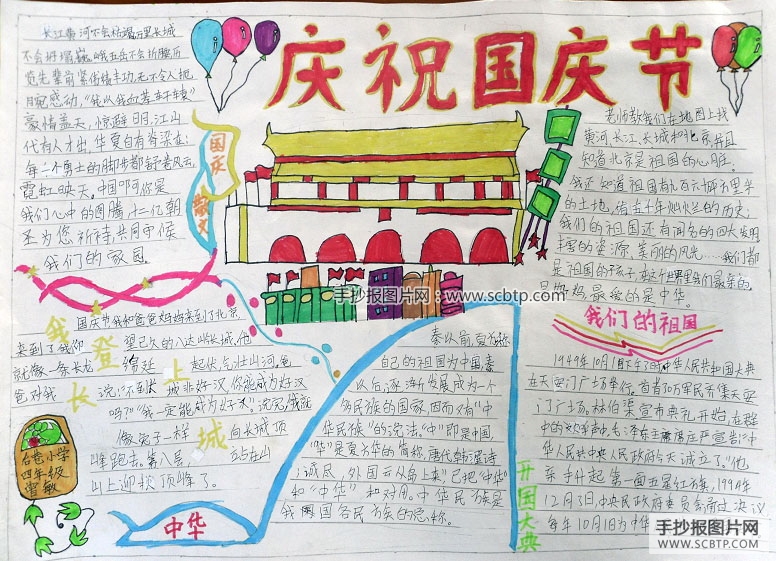 庆祝国庆节
长江黄河不会枯竭万里长城
不会坍塌巍峨五岳不会折腰历
党先辈前
丰功无不令人
感动，“我以我血荐轩辕”
豪情盖天，惊避日月江山
代有人才出华夏自有脊梁在；
每一个勇士的脚步都
风云，
霓虹映天。中国啊你是
我们心中的图腾，十二亿朝
圣为您祈祷，共同守候
我们的家园。
国庆
散文
老师教我们在地图上找
黄河长江、长城和北京，并且
知道北京是祖国的心脏。
我还知道祖国有九百六
万里
的土地，有五千年灿烂的历史；
我们的祖国还有闻名的四大发明
丰富的资源、美丽的风光……我们都
是祖国的孩子，在这个世界里我们最亲的
是妈妈，最爱的是中华。
手抄报图片网：www.scbtp.com
我登上长城
国庆节我和爸爸妈妈来到了北京，
来到了我仰望已久的八达岭长城，他
就像一条长龙绵延起伏，气壮山河。爸
爸对我说：“不到长城非好汉，你能成为好汉
吗？”“我一定能成为好汉”，说完，我就
像兔子一样向长城顶
峰跑去。第八层，站在山
山上迎
顶峰了。
台巷小学
四年级
曾敏
秦以前，夏
称
自己的祖国为中国秦
以后，逐渐发展成为一个
多民族的国家，因而又有“中
华民族”的说法。“中”即是中国，
“华”是夏
华的简称，唐代韩
诗
：“诚尽
外国云从岛上来”已把“中华”
和“中华”和对
。中华民族是
我国各民族的总称。
中华
我们的祖国
1949年10月1日下午3时，中华人民共和国大典
在天安门广场举行。首都30万军民齐集天安
门广场。林伯渠宣布典礼开始，在群
中的欢呼声中，毛泽东主席庄严宣告“中
华人民共和国中央人民政府今天成立了。”他
亲手升起第一面五星红旗，1949年
12月3日，中央人民政府委员会
决议
每年10月1日为中华
开国大典
手抄报图片网
WWW.SCBTP.COM